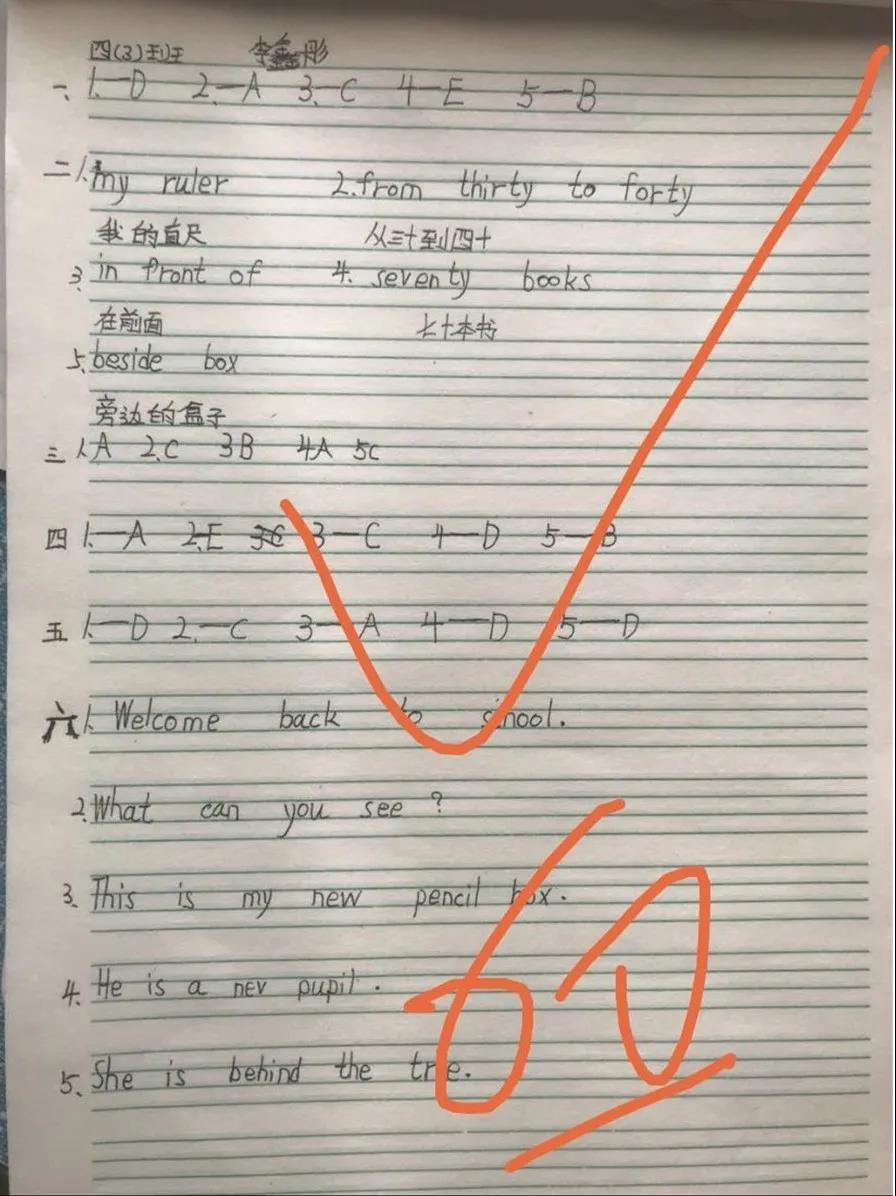 四(3)班 李鑫彤
一、1.—D 2.—A 3.—C 4—E 5—B
二、1.my ruler 2.from thirty to forty
我的直尺 从三十到四十
3.in front of 4. seventy books
在前面 七十本书
5.beside box
旁边的盒子
三 1.A 2.C 3B 4A 5C
四 1.—A 2.E 3—C 4—D 5—B
五 1.—D 2.—C 3—A 4—D 5—D
六1. Welcome back to school.
2.What can you see ?
3.This is my new pencil box.
4.He is a nev pupil.
5.She is behind the tree.